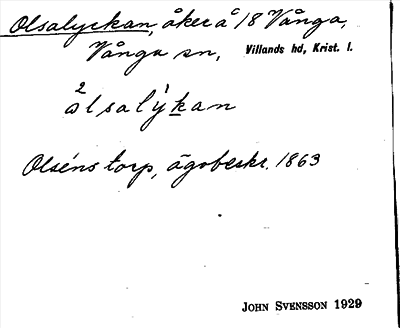 Olsalyckan, åker å 18 Vånga,
Vånga sn, Villands hd, Krist. l.
2 1
ålsalýkan
Olséns torp, ägobeskr. 1863
JOHN SVENSSON 1929